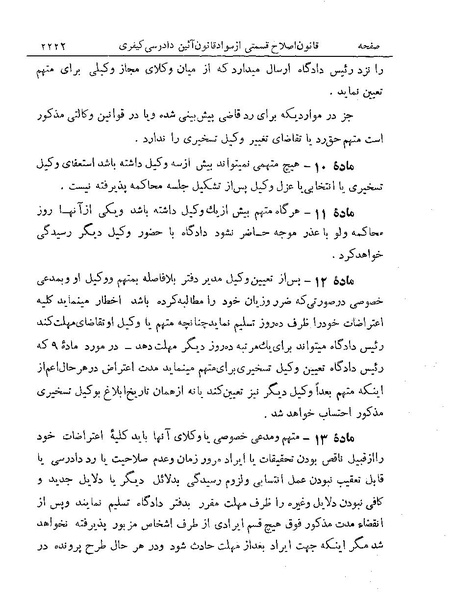 صفحه قانون اصلاح قسمتی از مواد قانون آئین دادرسی کیفری ۲۲۲۲
را نزد رئیس دادگاه ارسال میدارد که از میان وکلای مجاز وکیلی برای متهم
تعیین نماید .
جز در مواردیکه برای رد قاضی پیش‌بینی شده ویا در قوانین وکالتی مذکور
است متهم حق رد یا تقاضای تغییر وکیل تسخیری را ندارد .
مادهٔ ۱۰ – هیچ متهمی نمیتواند بیش از سه وکیل داشته باشد استعفای وکیل
تسخیری یا انتخابی یا عزل وکیل پس از تشکیل جلسه محاکمه پذیرفته نیست .
مادهٔ ۱۱ – هرگاه متهم بیش از یك وکیل داشته باشد ویکی از آنها روز
محاکمه ولو با عذر موجه حاضر نشود دادگاه با حضور وکیل دیگر رسیدگی
خواهد کرد .
مادهٔ ۱۲ – پس از تعیین وکیل مدیر دفتر بلافاصله بمتهم ووکیل او وبمدعی
خصوصی درصورتی‌که ضرر وزیان خود را مطالبه کرده باشد اخطار مینماید کلیه
اعتراضات خود را ظرف ده روز تسلیم نماید چنانچه متهم یا وکیل او تقاضای مهلت کند
رئیس دادگاه میتواند برای یك مرتبه ده روز دیگر مهلت دهد – در مورد مادهٔ ۹ که
رئیس دادگاه تعیین وکیل تسخیری برای متهم مینماید مدت اعتراض در هر حال اعم از
اینکه متهم بعداً وکیل دیگر نیز تعیین کند یا نه از همان تاریخ ابلاغ بوکیل تسخیری
مذکور احتساب خواهد شد .
مادهٔ ۱۳ – متهم ومدعی خصوصی یا وکلای آنها باید کلیهٔ اعتراضات خود
را از قبیل ناقص بودن تحقیقات یا ایراد مرور زمان وعدم صلاحیت یا رد دادرسی یا
قابل تعقیب نبودن عمل انتسابی ولزوم رسیدگی بدلائل دیگر یا دلایل جدید و
کافی نبودن دلایل وغیره را ظرف مهلت مقرر بدفتر دادگاه تسلیم نمایند وپس از
انقضاء مدت مذکور فوق هیچ قسم ایرادی از طرف اشخاص مزبور پذیرفته نخواهد
شد مگر اینکه جهت ایراد بعد از مهلت حادث شود ودر هر حال طرح پرونده در